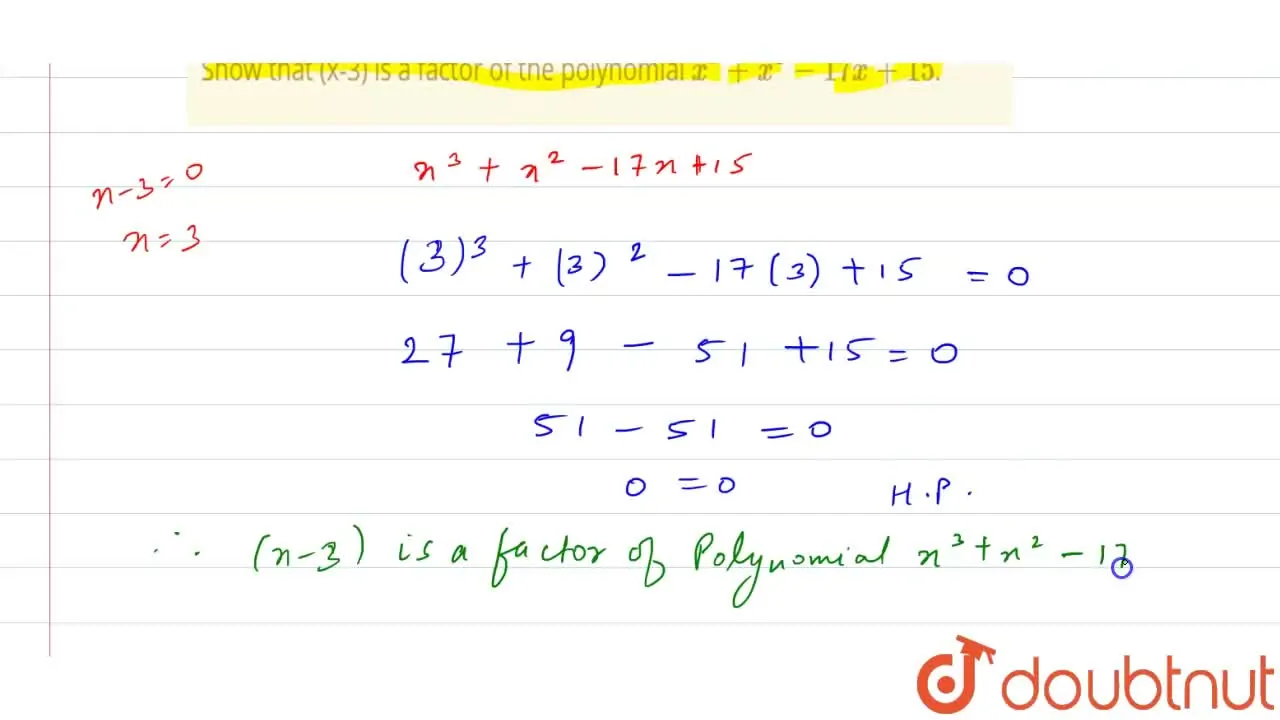 Show that (x-3) is a factor of the polynomial x³ + x² − 17x + 15.
x-3=0
x³ + x² - 17x + 15
x = 3
(3)³ + (3)² - 17(3) + 15 = 0
27 + 9 - 51 + 15 = 0
51 - 51 = 0
0 = 0 H.P.
∴ (x-3) is a factor of Polynomial x³ + x² - 17
doubtnut